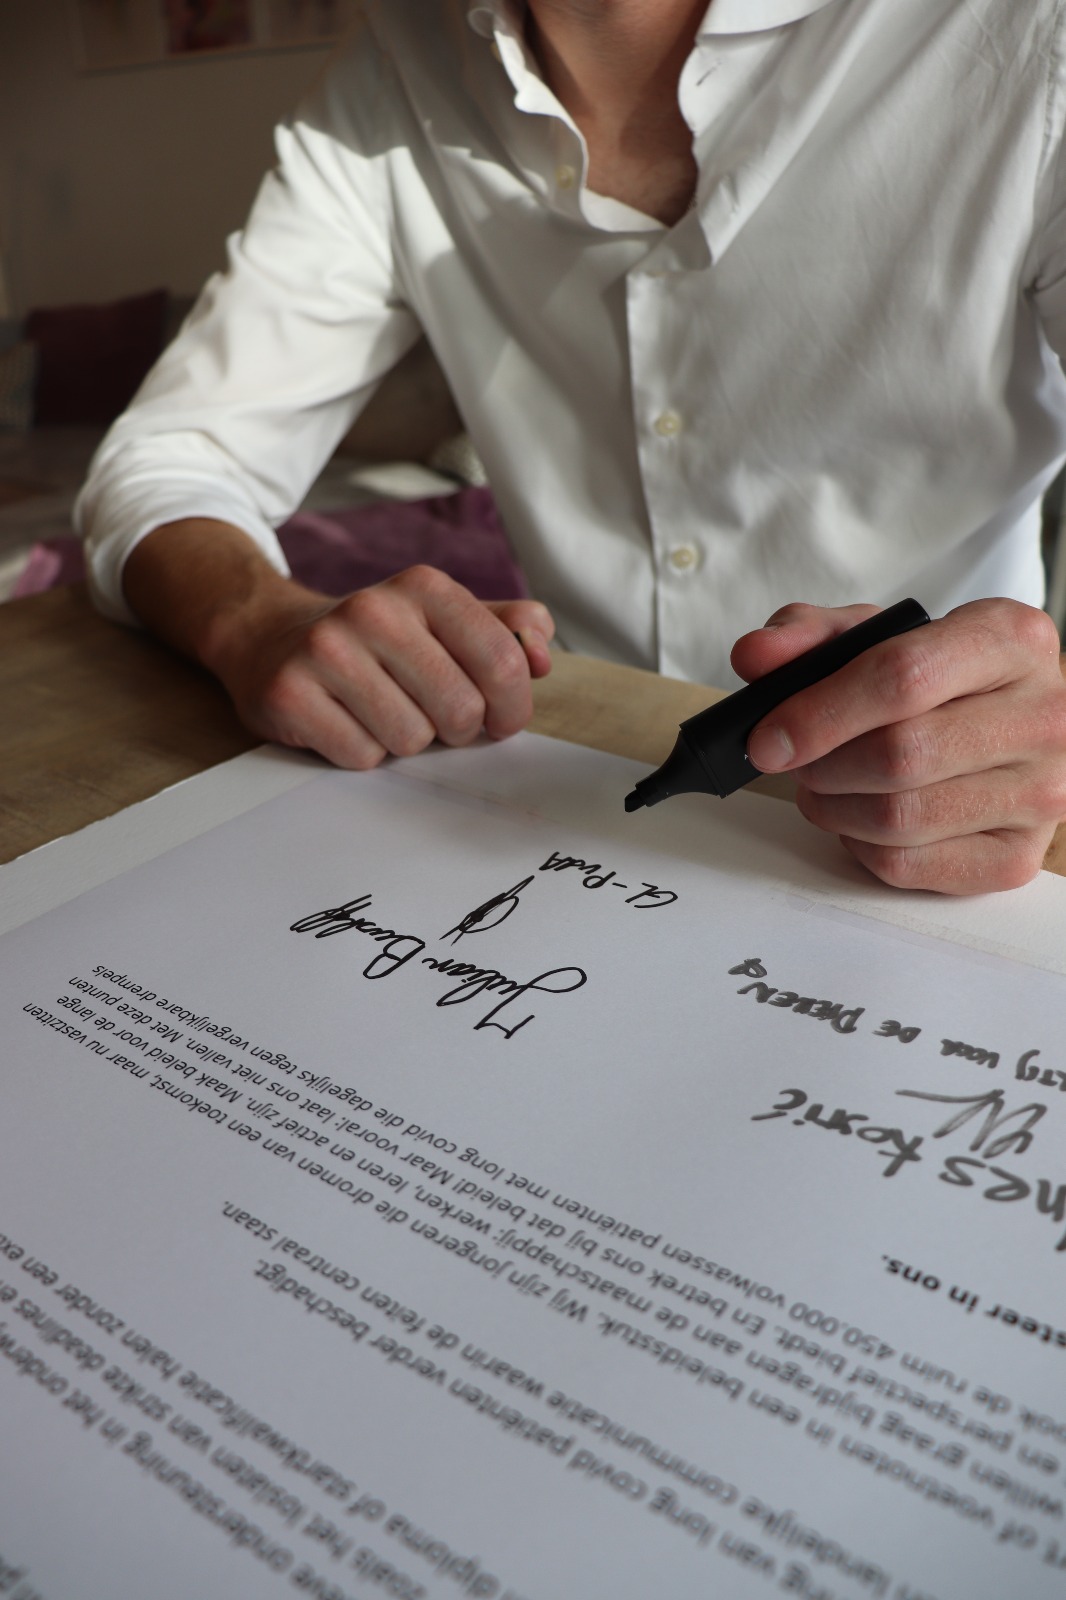 ondersteuning in het
zoals het loslaten van strikte deadlines
diploma of startkwalificatie halen zonder een
van long covid patiënten verder beschadigt.
landelijke communicatie waarin de feiten centraal staan.
of voetnoten in een beleidsstuk. Wij zijn jongeren die dromen van een toekomst, maar nu vastzitten
willen graag bijdragen aan de maatschappij: werken, leren en actief zijn. Maak beleid voor de lange
en perspectief biedt. En betrek ons bij dat beleid! Maar vooral: laat ons niet vallen. Met deze punten
de ruim 450.000 volwassen patiënten met long covid die dagelijks tegen vergelijkbare drempels
in ons.
Kostić
voor DE DIEREN
Julian Bushoff
GL-PvdA